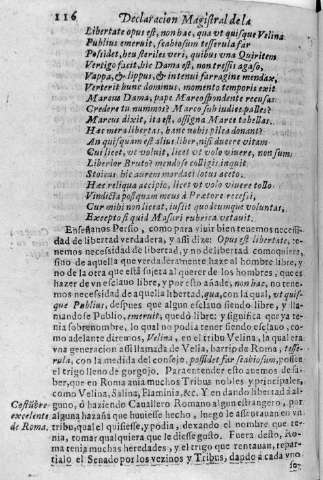 116 Declaracion Magistral de la
Libertate opus est, non hac, qua vt quisque Velina
Publius emeruit, scabiosum tesserula far
Possidet, heu steriles veri, quibus vna Quiritem
Vertigo facit, hic Dama est, non tressis agaso,
Vappa, & lippus, & intenui farragine mendax,
Verterit hunc dominus, momento temporis exit
Marcus Dama, papæ Marco spondente recusas
Credere tu nummos? Marco sub iudice palles?
Marcus dixit, ita est, assigna Marce tabellas.
Hac mera libertas, hanc nobis pilea donant?
An quisquam est alius liber, nisi ducere vitam
Cui licet, vt voluit, licet vt volo viuere, non sum
Liberior Bruto? mendose colligis, inquit
Stoicus hic aurem mordaci lotus aceto.
Hæc reliqua accipio, licet vt volo viuere tollo
Vindicta posquam meus à Prætore recessi,
Cur mihi non liceat, iussit quodcumque voluntas,
Excepto si quid Masuri rubrica vetauit.
Enseñanos Persio, como para viuir bien tenemos necessi-
dad de libertad verdadera, y assi dize: Opus est libertate, te-
nemos necessidad de libertad, y no de libertad como quiera,
sino de aquella que verdaderamente haze al hombre libre, y
no de la otra que está sujeta al querer de los hombres, que es
hazer de vn esclauo libre, y por esto añade, non hac, no tene-
mos necessidad de aquella libertad, qua, con la qual, vt quis-
que Publius, despues que algun esclauo siendo libre, y lla-
mandose Publio, emeruit, quedó libre; y significa que ya te-
nia sobrenombre, lo qual no podia tener siendo esclauo, co-
mo adelante diremos, Velina, en el tribu Velina, la qual era
vna generacion assi llamada de Velia, barrio de Roma, tesse-
rula, con la medida del consejo, possidet far scabiosum, possee
el trigo lleno de gorgojo. Para entender esto auemos de sa-
ber, que en Roma auia muchos Tribus nobles y principales,
como Velina, Salina, Flaminia, &c. Y en dando libertad à al-
guno, ó haziendo Cauallero Romano algun estrangero, por
alguna hazaña que huuiesse hecho, luego le assentauan en vn
tribu, qual el quisiesse, y podia, dexando el nombre que te-
nia, tomar qualquiera que le diesse gusto. Fuera desto, Ro-
ma tenia muchas heredades, y el trigo que rentauan, repar-
tialo el Senado por los vezinos y Tribus, dando à cada vno
Costũbre
excelente
de Roma.